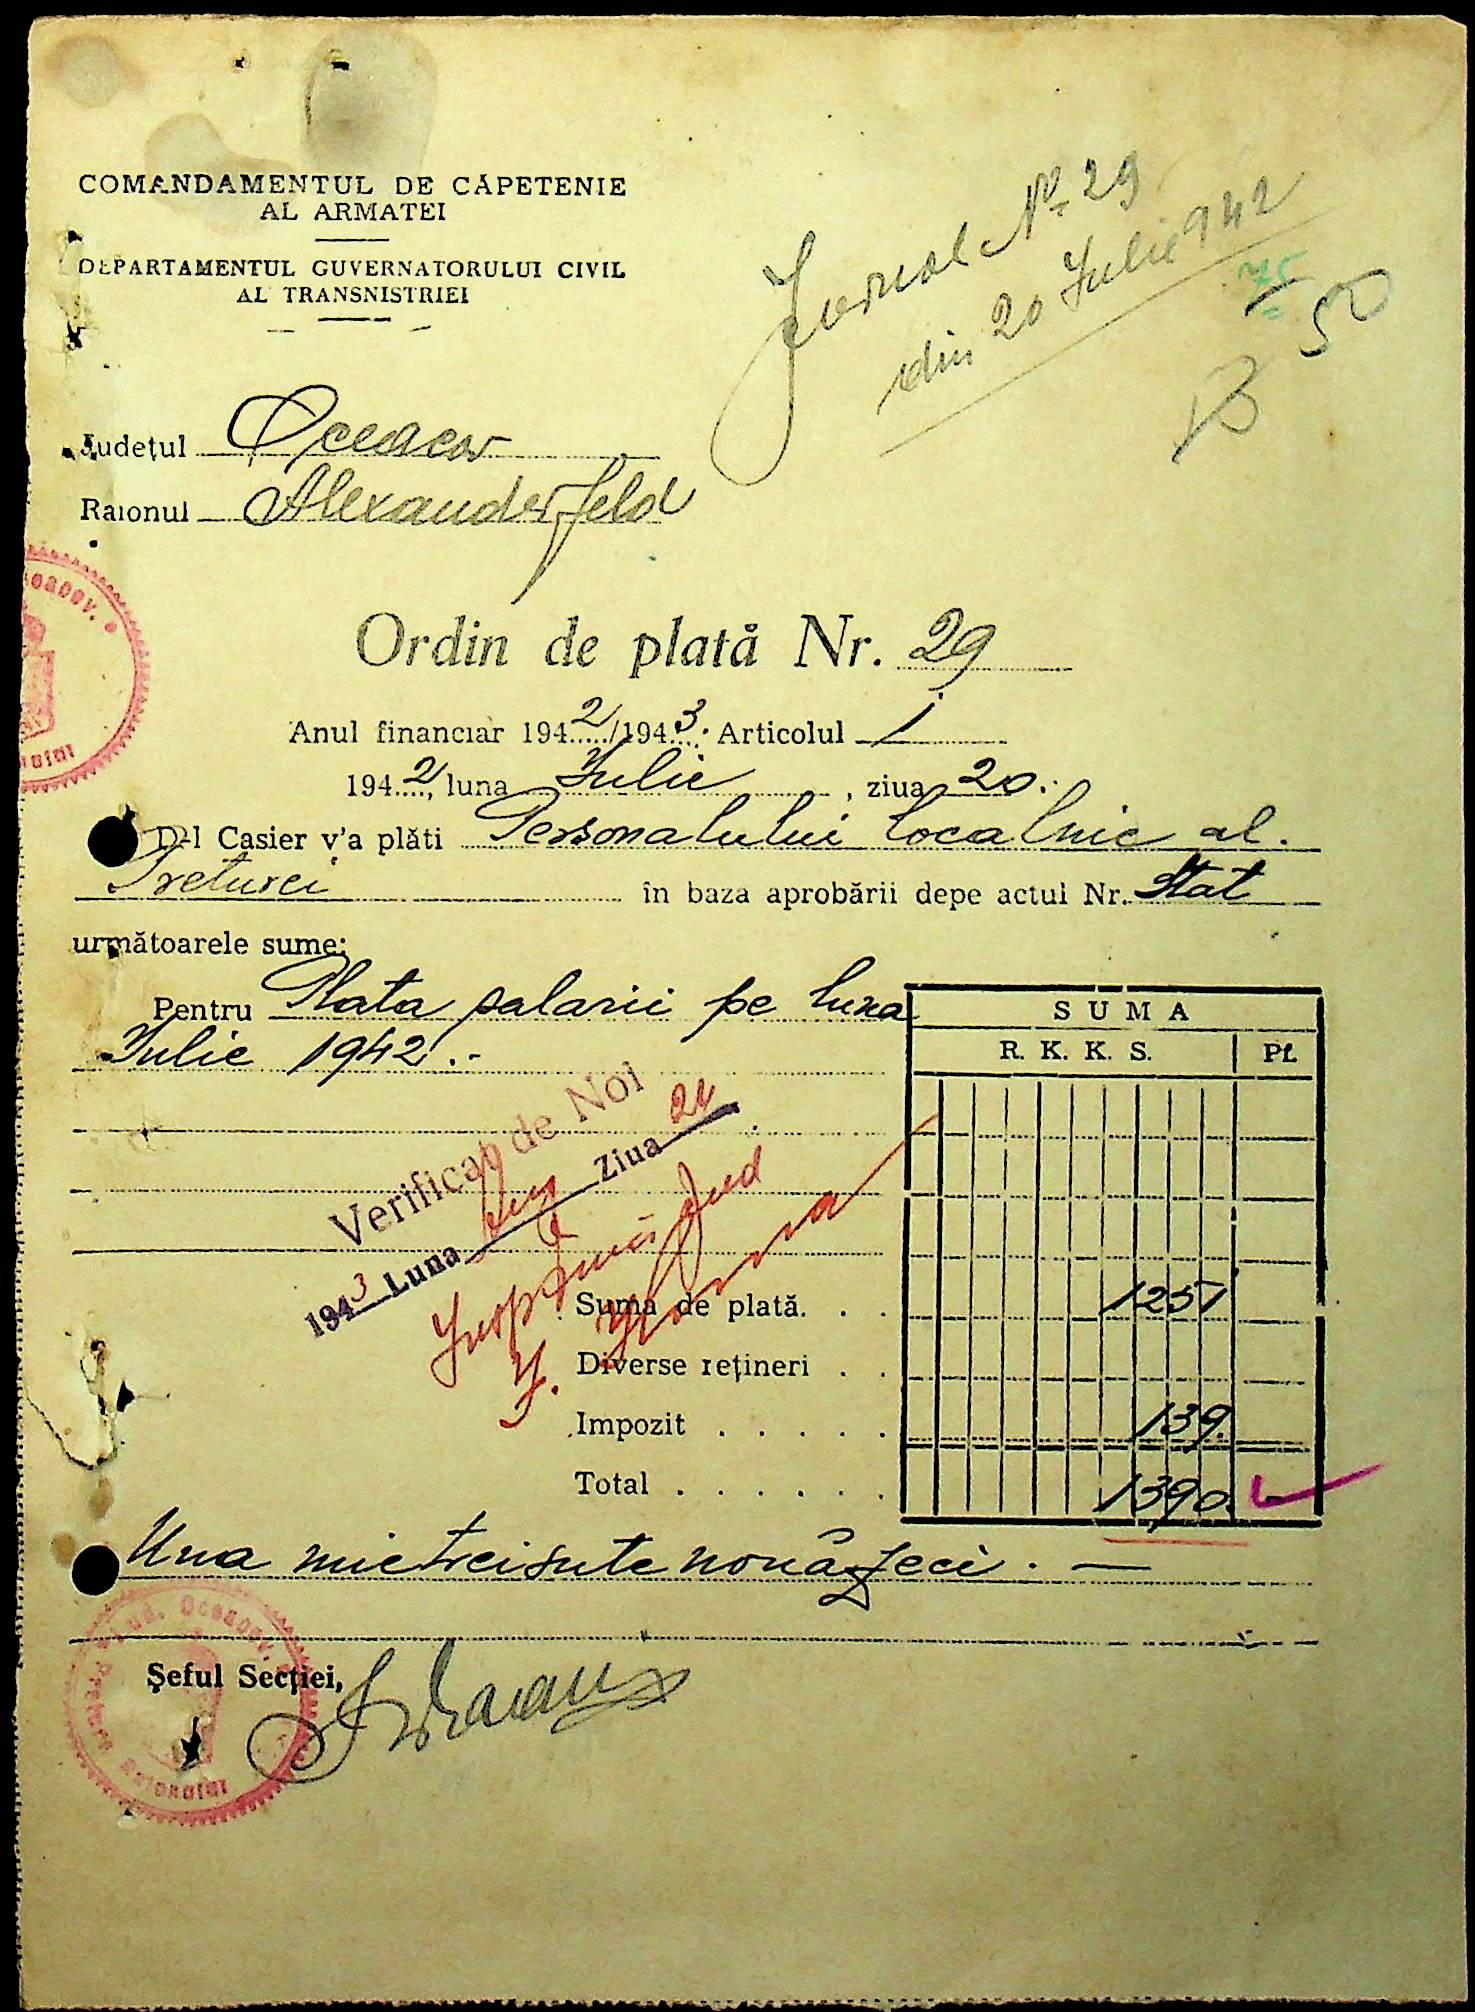 COMANDAMENTUL DE CĂPETENIE
AL ARMATEI
DEPARTAMENTUL GUVERNATORULUI CIVIL
AL TRANSNISTRIEI
Jurnal No 29
din 20 Iulie 942
50
Județul Oceacov
Raionul Alexanderfeld
Ordin de plată Nr. 29
Anul financiar 1942/1943. Articolul 1
1942, luna Iulie, ziua 20.
D-l Casier v'a plăti Personalului localnic al.
Preturei în baza aprobării depe actul Nr. Stat
următoarele sume:
Pentru Plata salarii pe luna
Iulie 1942.-
SUMA
R. K. K. S. Pf.
Verificat de Noi
1943 Luna Ziua 21
Suma de plată. . . 1251
Diverse rețineri . .
Impozit . . . . . 139.
Total . . . . . . 1390.
Una mie trei sute nouăzeci. —
Șeful Secției,
Jud. Oceacov.
Pretura Raionului